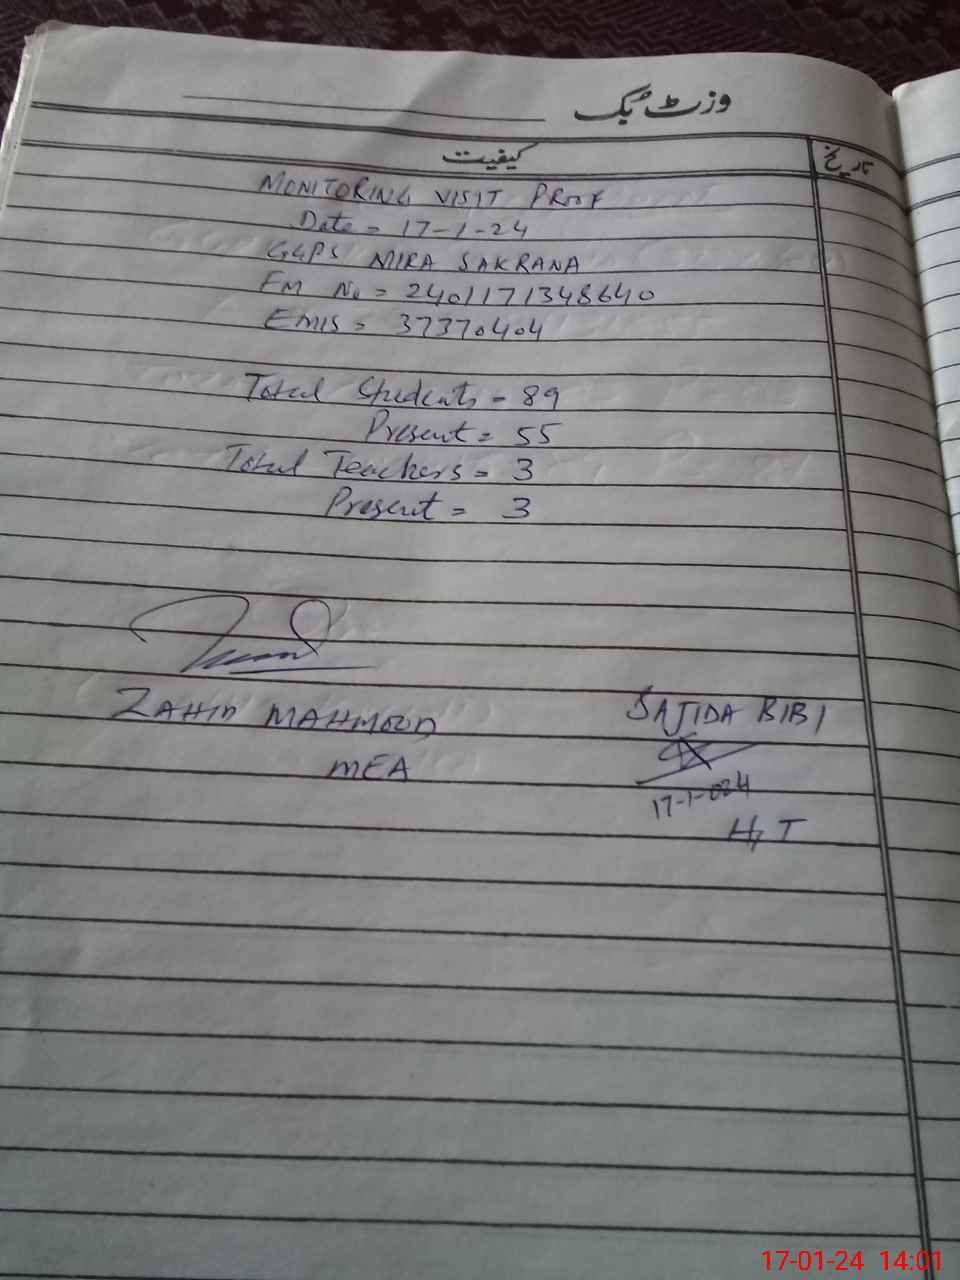 وزٹ بک
کیفیت
تاریخ
MONITORING VISIT PROOF
Date = 17-1-24
GGPS MIRA SAKRANA
FM No = 2401171348640
EMIS = 37370404
Total Students = 89
Present = 55
Total Teachers = 3
Present = 3
ZAHID MAHMOOD
MEA
SAJIDA BIBI
17-1-024
H,T
17-01-24 14:01